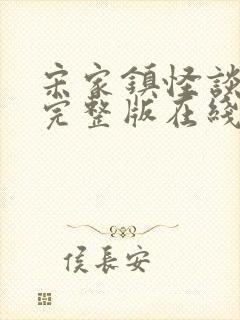 宋家鎮怪談
完整版在綫
侯長安